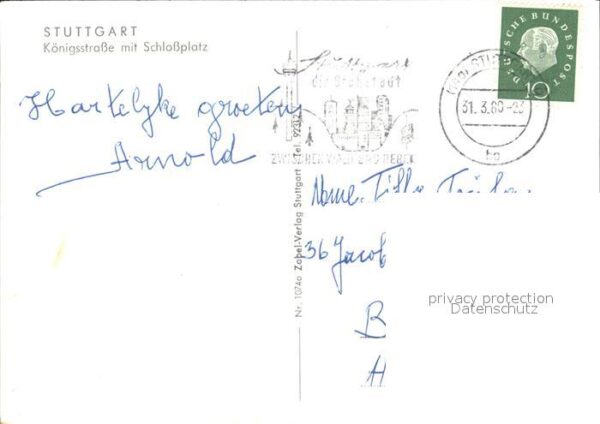 STUTTGART
Königsstraße mit Schloßplatz
Hartelyke groeten
Arnold
Stuttgart
die Großstadt
ZWISCHEN WALD UND REBEN
31.3.60-23
DEUTSCHE BUNDESPOST
10
Nr. 1074a Zobel-Verlag Stuttgart Tel.
36 Jacob
B
H
privacy protection
Datenschutz